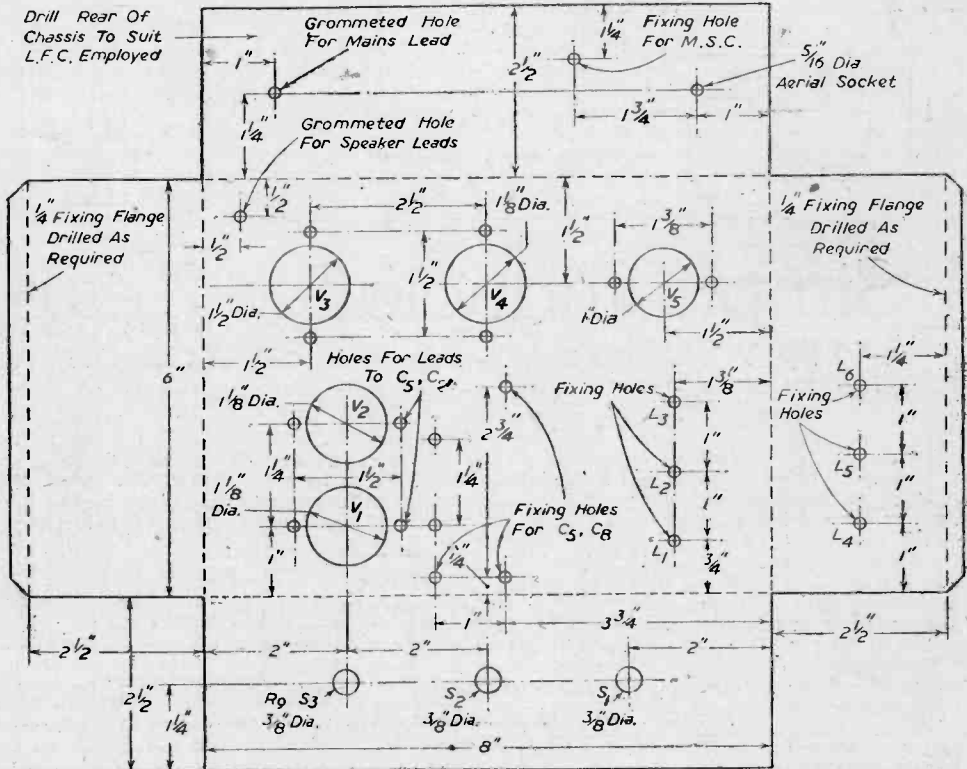 Drill Rear Of
Chassis To Suit
L.F.C. Employed
Grommeted Hole
For Mains Lead
Fixing Hole
For M.S.C.
5/16" Dia
Aerial Socket
1"
1 1/4"
2 1/2"
1 1/4"
1 3/4"
1"
Grommeted Hole
For Speaker Leads
1/4" Fixing Flange
Drilled As
Required
1/2"
1/2"
2 1/2"
1 1/8" Dia.
1 1/2"
1 3/8"
1 1/2"
1/4" Fixing Flange
Drilled As
Required
V3
V4
V5
1 1/2" Dia.
1" Dia
1 1/2"
1 1/2"
6"
Holes For Leads
To C5, C2,
1 1/8" Dia.
V2
2 3/4"
Fixing Holes
1 3/8"
L3
1"
L2
1"
L1
3/4"
1 1/4"
L6
Fixing
Holes
1"
L5
1"
L4
1"
1 1/4"
1 1/2"
1 1/4"
1 1/8"
Dia.
V1
Fixing Holes
For C5, C8
1"
1/4"
1"
3 3/4"
2 1/2"
2"
2"
2"
2 1/2"
2 1/2"
1 1/4"
R9 S3
3/8" Dia.
S2
3/8" Dia.
S1
3/8" Dia.
8"